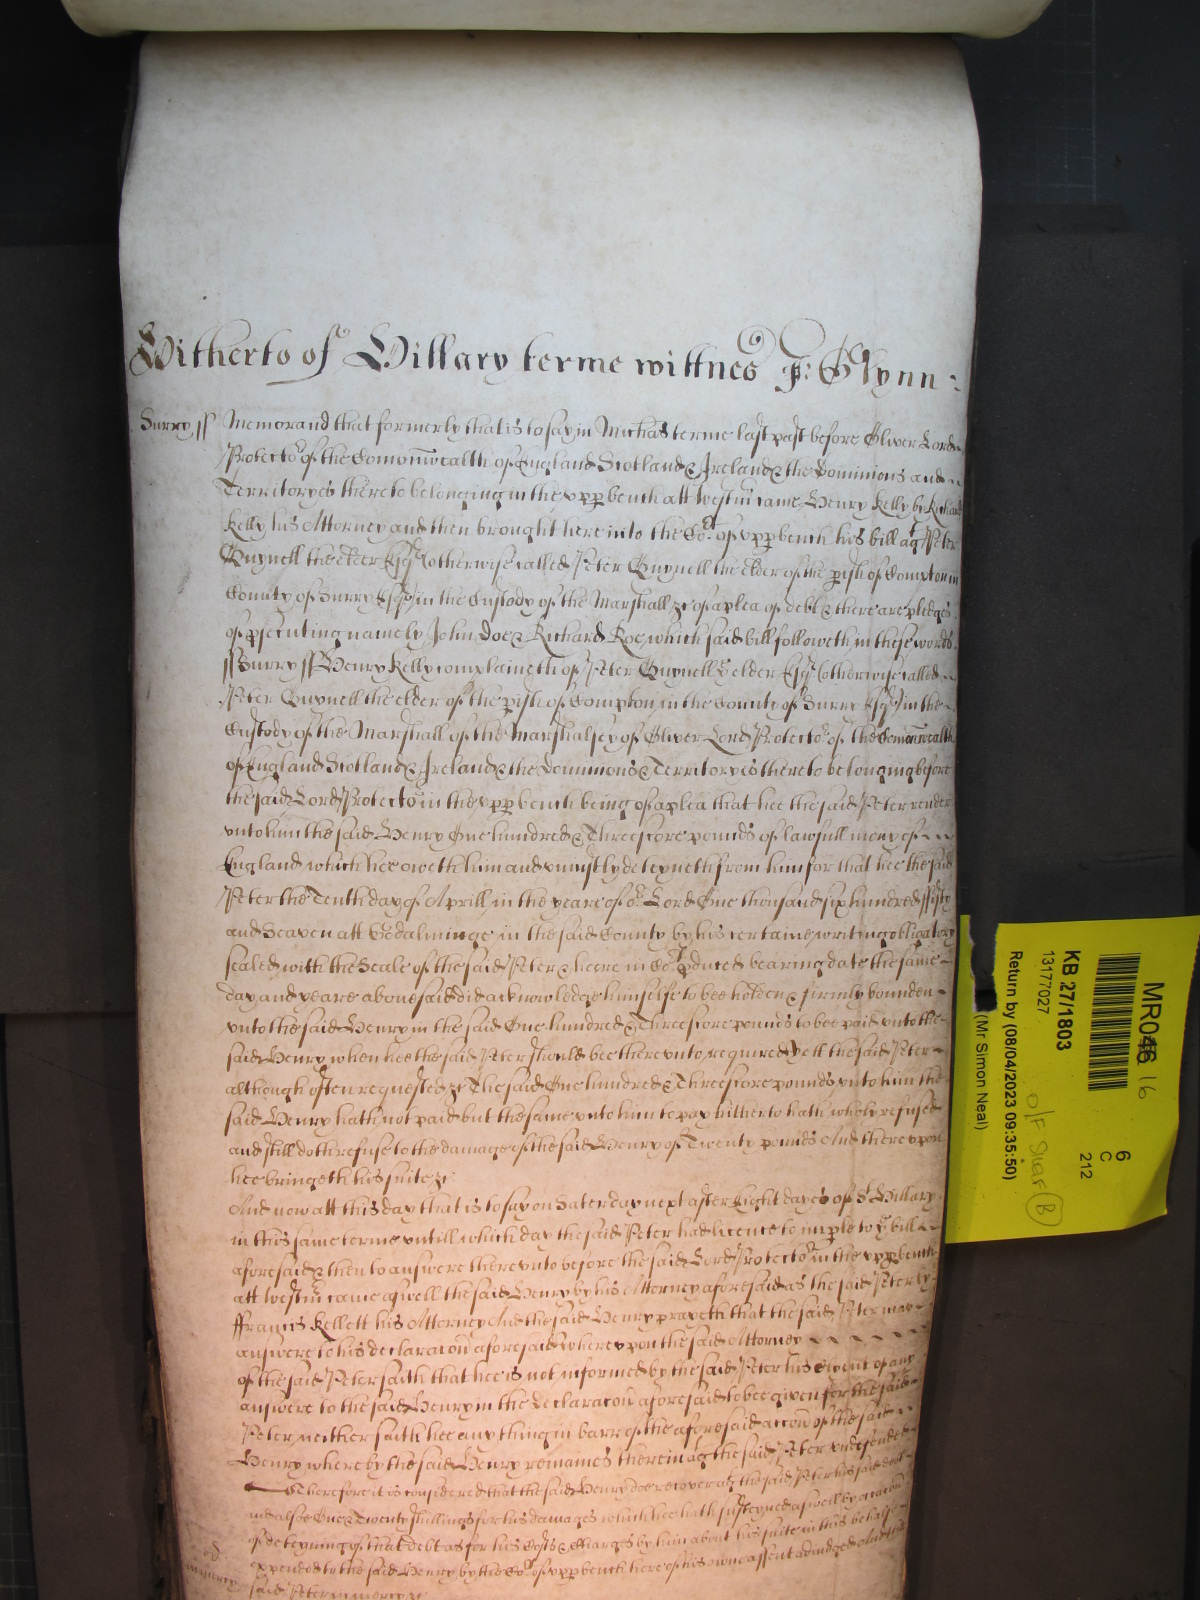 Hitherto of Hillary terme wittnes J: Glynn:
Surry ss Memorand that formerly that is to say in Michas terme last past before Oliver Lord
Protector of the Comonwealth of England Scotland & Ireland & the Dominions and
Territoryes thereto belonging in the upp bench att Westm came Henry Kelly by Richard
Kelly his Attorney and then brought here into the Cot of upp bench his bill agt Peter
Quynell the elder Esqr (otherwise called Peter Quynell the elder of the pish of Compton in
County of Surry Esqr) in the Custody of the Marshall &c of a plea of debt & there are pledges
of psecuting namely John Doe & Richard Roe, which said bill followeth in these words
ss Surry ss Henry Kelly complaineth of Peter Quynell ye elder Esqr (otherwise called
Peter Quynell the elder of the pish of Compton in the County of Surry Esqr) in the
Custody of the Marshall of the Marshalsey of Oliver Lord Protector of the Comonwealth
of England Scotland & Ireland & the Dominions & Territoryes thereto belonging before
the said Lord Protector in the upp bench being of a plea that hee the said Peter render
unto him the said Henry One hundred & Threescore pounds of lawfull money of
England which hee oweth him and uniustly deteyneth from him for that hee the said
Peter the Tenth day of Aprill in the yeare of or Lord One thousand six hundred ffifty
and Seaven att Godalminge in the said County by his certaine writing obligatory
sealed with the Seale of the said Peter & heere in Cot pduced bearing date the same
day and yeare abovesaid did acknowledge himselfe to bee holden & firmly bounden
unto the said Henry in the said One hundred & Threescore pounds to bee paid unto the
said Henry when hee the said Peter should bee thereunto required Yett the said Peter
although often requested &c The said One hundred & Threescore pounds unto him the
said Henry hath not paid but the same unto him to pay hitherto hath wholy refused
and still doth refuse to the damage of the said Henry of Twenty pounds And thereupon
hee bringeth his suite &c
And now att this day that is to say on Saterday next after Eight dayes of St Hillary
in this same terme untill which day the said Peter had licence to imple to ye bill
aforesaid & then to answere thereunto before the said Lord Protector in the upp bench
att Westm came aswell the said Henry by his Attorney aforesaid as the said Peter by
ffrancis Kellett his Attorney And the said Henry prayeth that the said Peter may
answere to his declaracon aforesaid whereupon the said Attorney
of the said Peter saith that hee is not informed by the said Peter his Clyent of any
answere to the said Henry in the declaracon aforesaid to bee given for the said
Peter, neither saith hee any thing in barr of the aforesaid accon of the said
Henry whereby the said Henry remaines therein agt the said Peter undefended
Therefore it is considered that the said Henry doe recover agt the said Peter his said debt
and alsoe One & Twenty shillings for his damages which hee hath susteyned aswell by occacon
of deteyning of that debt as for his Costs & Charges by him about his suite in this behalfe
expended to the said Henry by the Cot of upp bench here of his owne assent adiudged And the
said Peter in mercy &c
MR046 16
KB 27/1803
13177027
Return by (08/04/2023 09:35:50)
(Mr Simon Neal)
6
C
212
O/F Shelf B